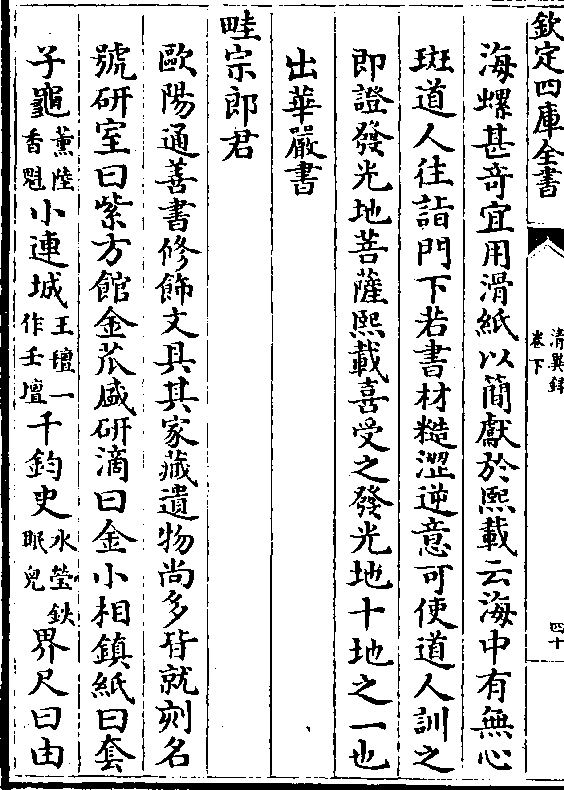 欽定四庫全書
清異錄
卷下
四十
海螺甚奇宜用滑紙以簡獻於熙載云海中有無心
斑道人往詣門下若書材糙澀逆意可使道人訓之
即證發光地菩薩熙載喜受之發光地十地之一也
出華嚴書
畦宗郎君
歐陽通善書修飾文具其家藏遺物尚多皆就刻名
號研室曰紫方館金苽盛研滴曰金小相鎮紙曰套
子龜薰陸香魁小連城王壇一作壬壇千鈞史水瑩鉄眠兒界尺曰由